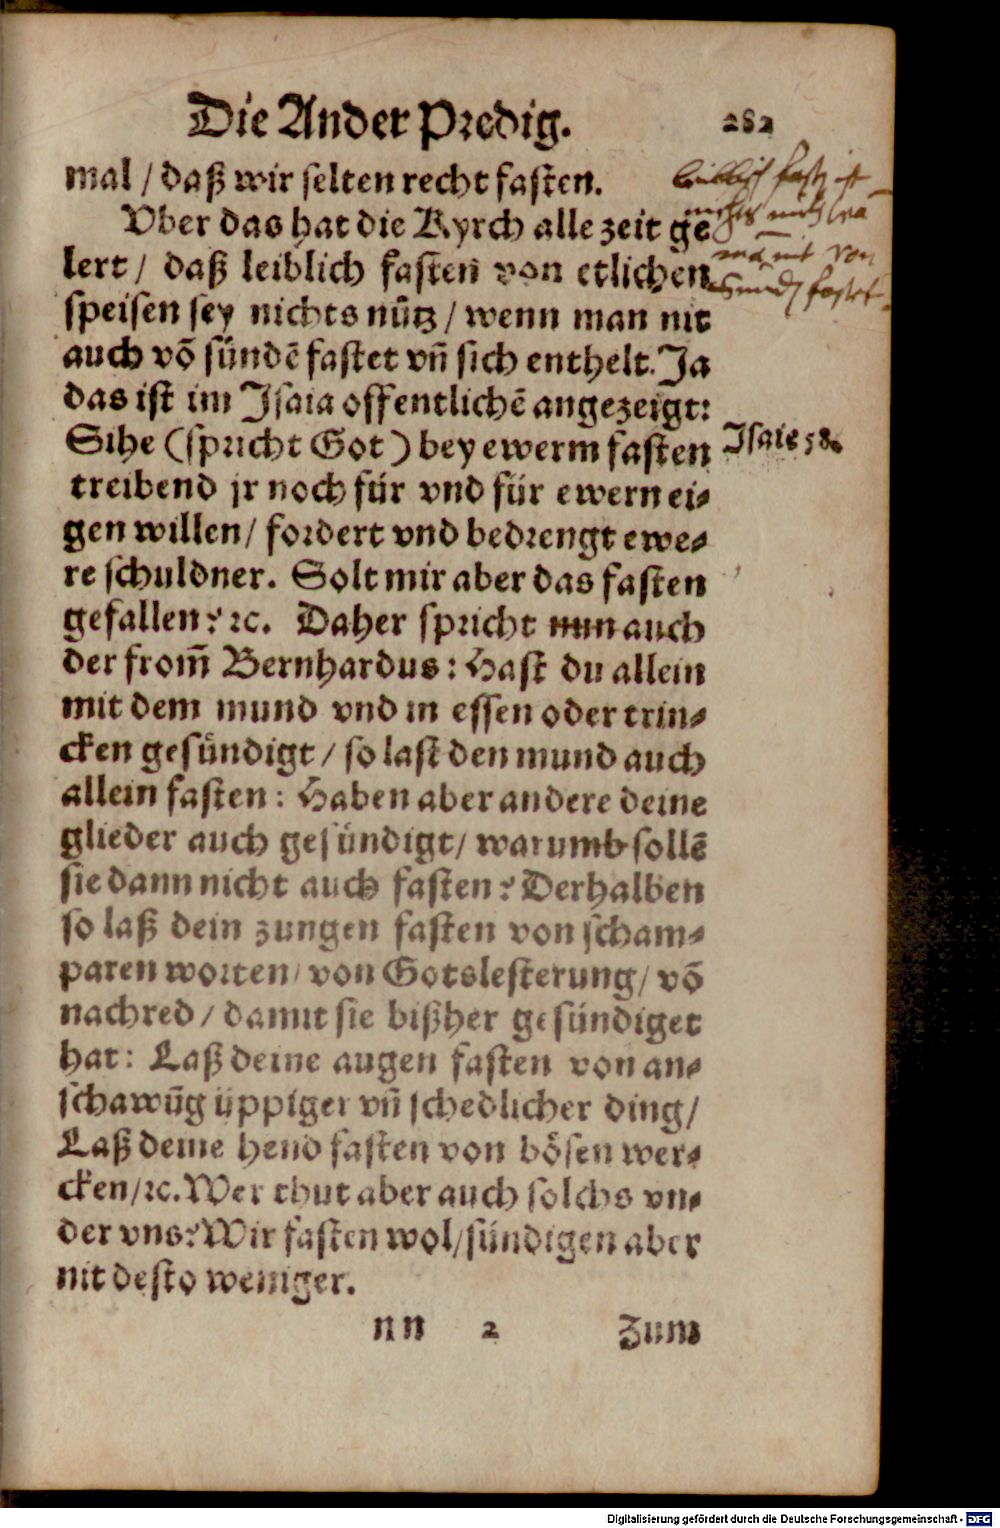 Die Ander Predig. 282
mal / daß wir selten recht fasten.
Vber das hat die Kyrch alle zeit ge
lert / daß leiblich fasten von etlichen
speisen sey nichts nütz / wenn man nit
auch võ sündẽ fastet vñ sich enthelt. Ja
das ist im Isaia offentlichẽ angezeigt:
Sihe (spricht Got) bey ewerm fasten
Isaie 58.
treibend jr noch für vnd für ewern ei⸗
gen willen / fordert vnd bedrengt ewe⸗
re schuldner. Solt mir aber das fasten
gefallen? ꝛc. Daher spricht nun auch
der from̃ Bernhardus: Hast du allein
mit dem mund vnd in essen oder trin⸗
cken gesündigt / so last den mund auch
allein fasten: Haben aber andere deine
glieder auch gesündigt / warumb sollẽ
sie dann nicht auch fasten? Derhalben
so laß dein zungen fasten von scham⸗
paren worten / von Gotslesterung / võ
nachred / damit sie bißher gesündiget
hat: Laß deine augen fasten von an⸗
schawũg üppiger vñ schedlicher ding /
Laß deine hend fasten von bösen wer⸗
cken / ꝛc. Wer thut aber auch solchs vn⸗
der vns? Wir fasten wol / sündigen aber
nit desto weniger.
nn 2 Zum
leiblich fasten ist
nichts nütz
man nit von
Sünden fastet
Digitalisierung gefördert durch die Deutsche Forschungsgemeinschaft - DFG